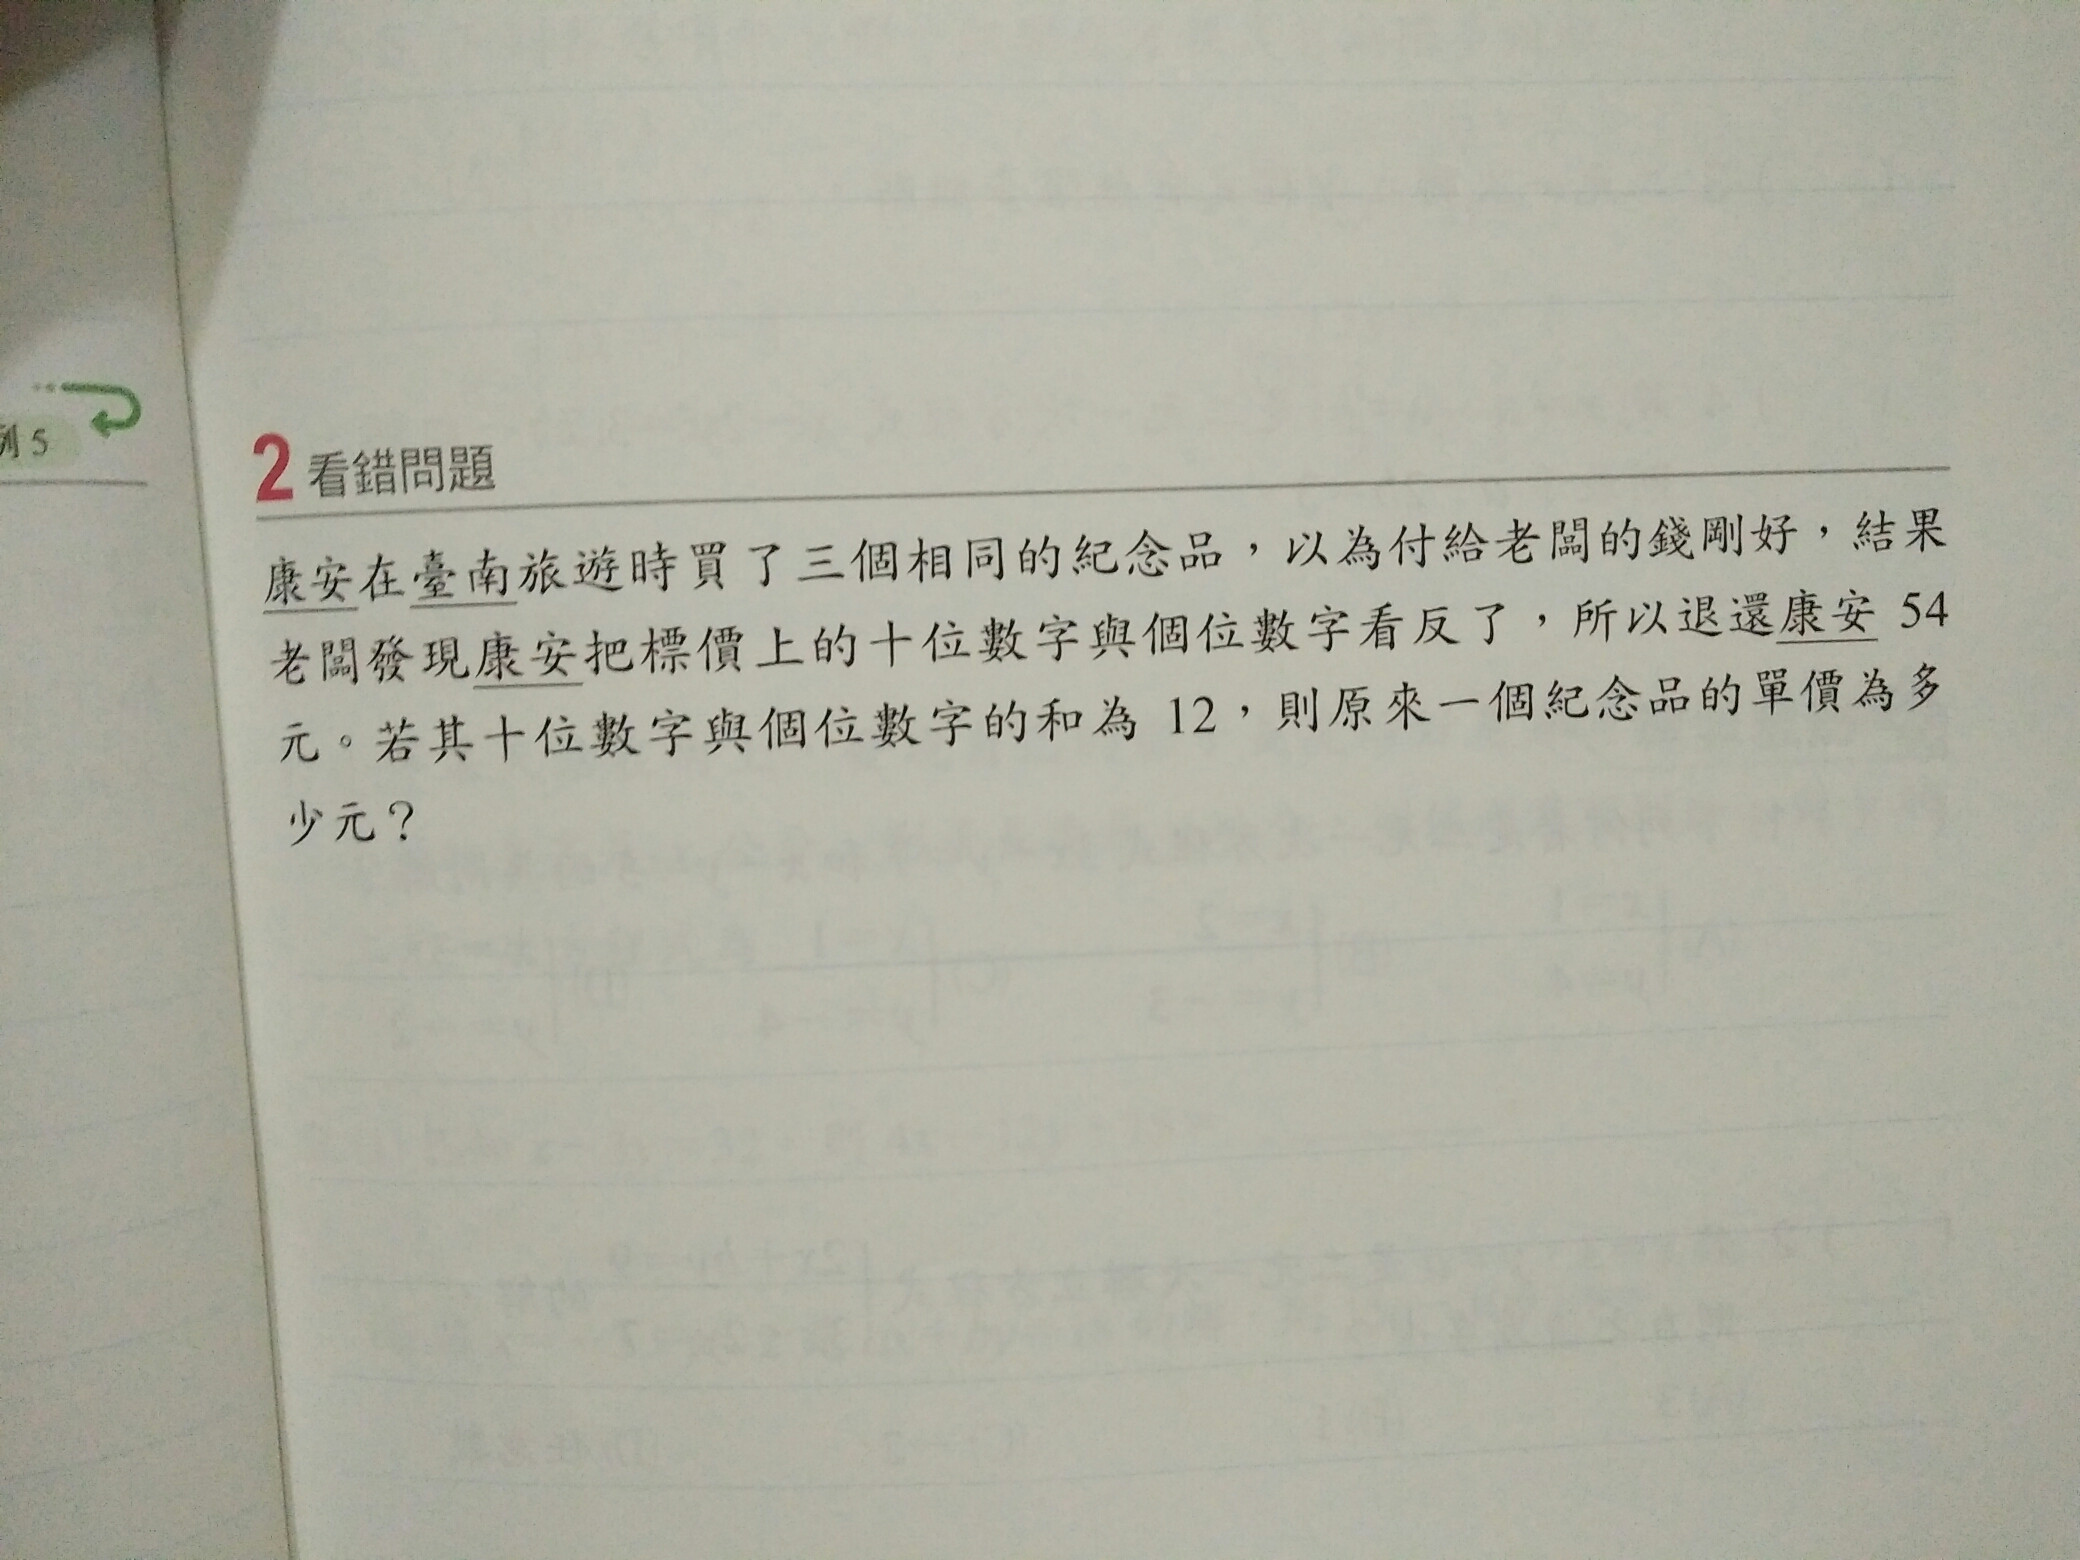 例5
2 看錯問題
康安在臺南旅遊時買了三個相同的紀念品，以為付給老闆的錢剛好，結果
老闆發現康安把標價上的十位數字與個位數字看反了，所以退還康安 54
元。若其十位數字與個位數字的和為 12，則原來一個紀念品的單價為多
少元？